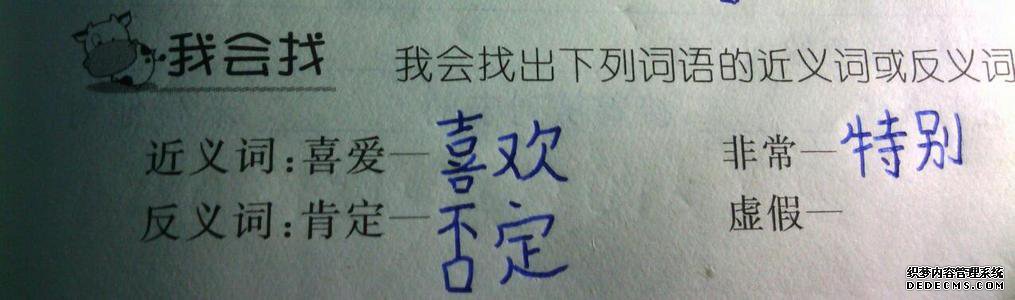 我会找 我会找出下列词语的近义词或反义词
近义词:喜爱—喜欢 非常—特别
反义词:肯定—否定 虚假—
织梦内容管理系统
DEDECMS.COM